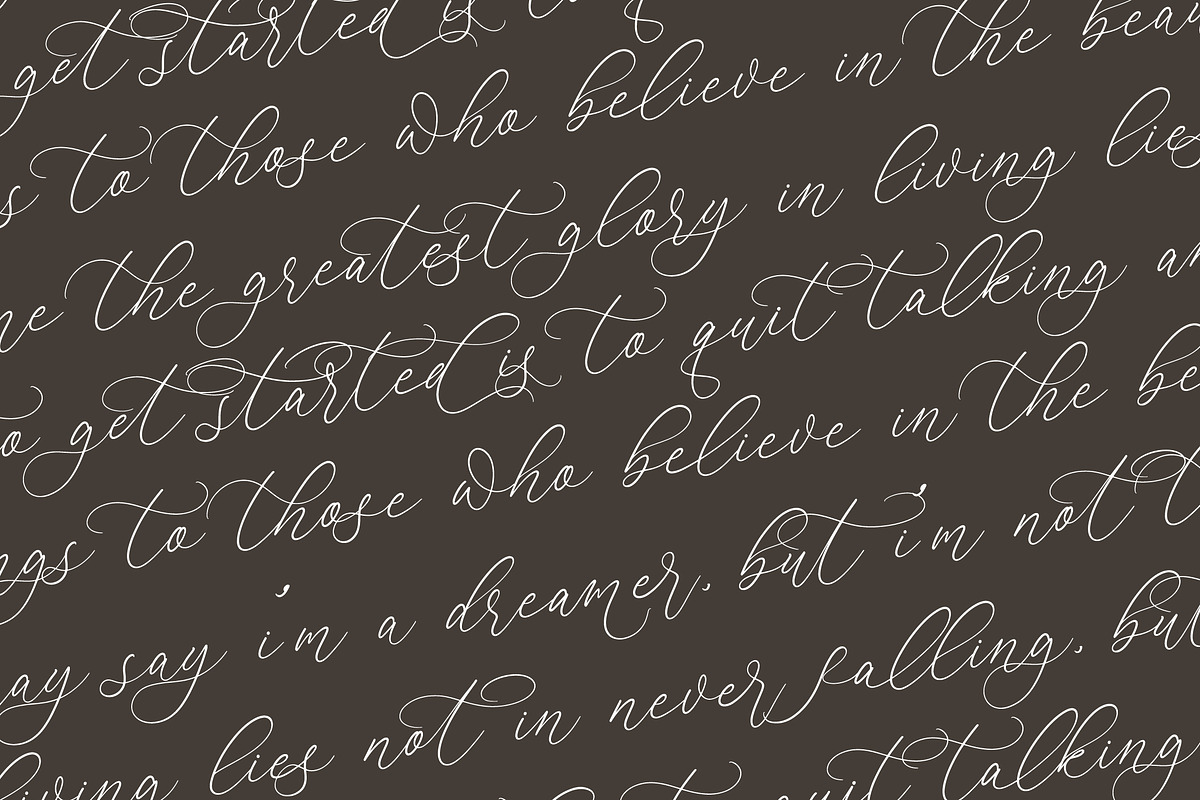 get started is
to those who believe in the beau
the greatest glory in living lies
to get started is to quit talking an
ngs to those who believe in the be
ay say i'm a dreamer, but i'm not t
living lies not in never falling, but
quit talking